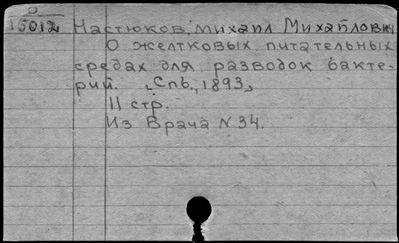 15012 Настюков, Михаил Михайлович
О желтковых питательных
средах для разводок бакте-
рий. Спб., 1893,
11 стр.
Из Врача N 34.